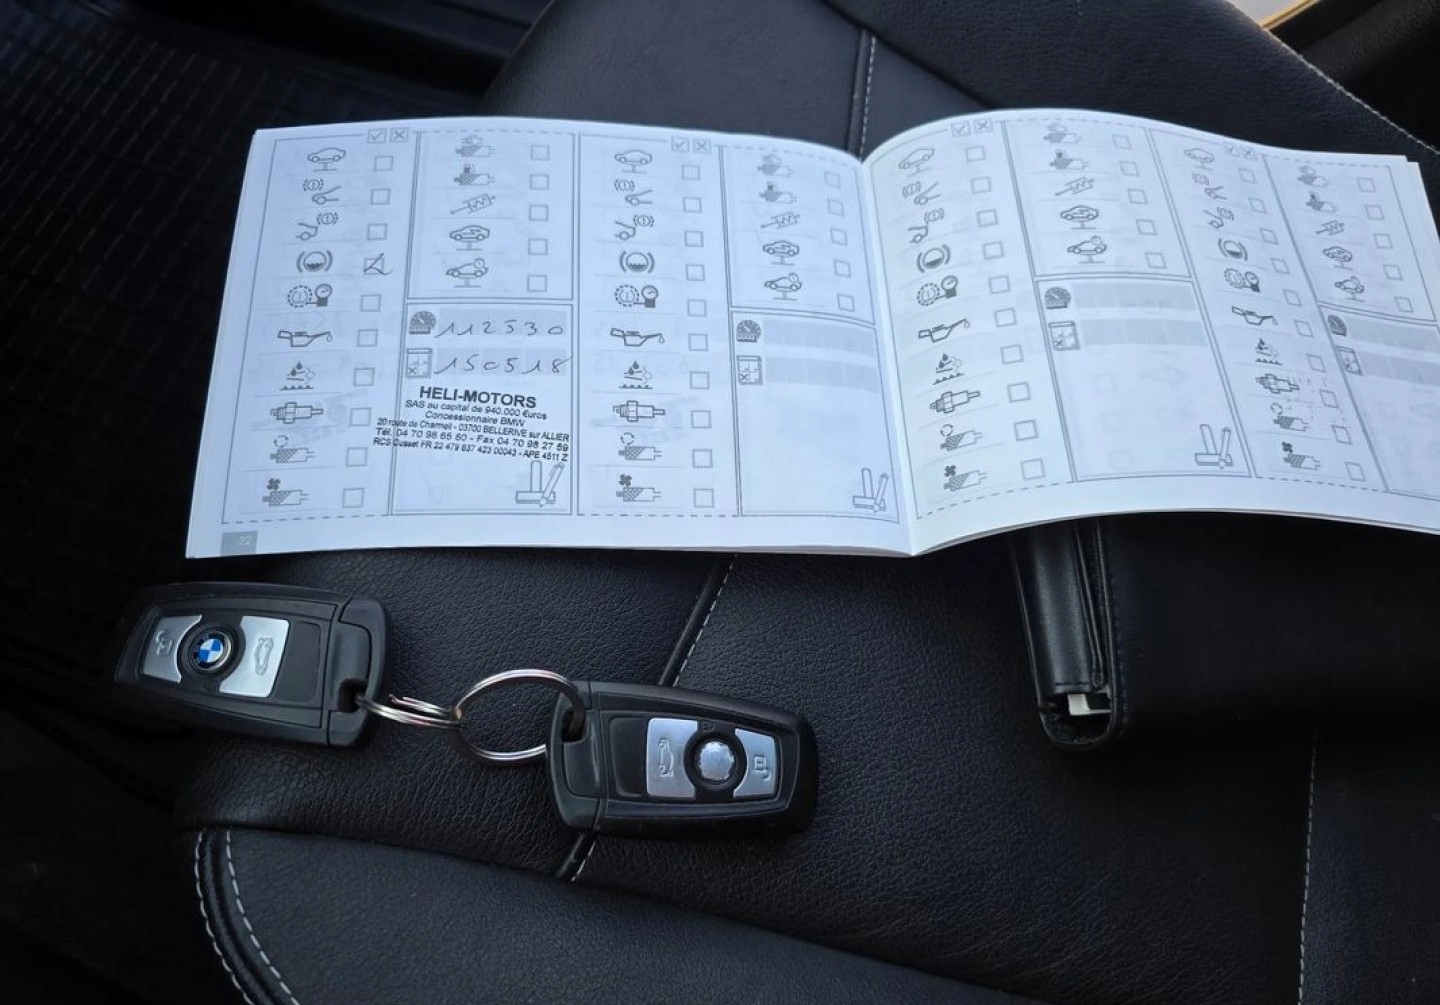 112530
150518
HELI-MOTORS
SAS au capital de 940.000 €uros
Concessionnaire BMW
20 route de Charmeil - 03700 BELLERIVE sur ALLIER
Tél. 04 70 98 65 60 - Fax 04 70 98 27 59
RCS Cusset FR 22 479 637 423 00043 - APE 4511 Z
22